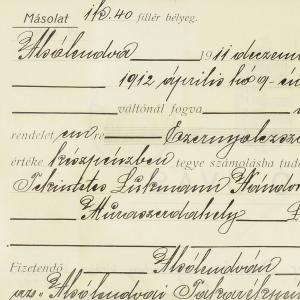 Másolat 1 K. 40 fillér bélyeg.
Alsólendva 1911 deczem
1912 április hó 9-én
váltónál fogva
rendelet em re Ezernyolczszá
értéke készpénzben tegye számolásba tudó
Tekintetes Lukmann Nándor
Muraszerdahely
Fizetendő Alsólendván
Alsólendvai Takarékpén